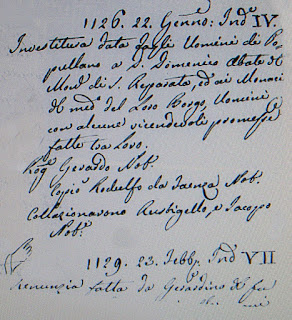 1126. 22. Genn.o Ind.e IV.
Investitura data dagli Uomini di Po-
pellano a D. Domenico Abate del
Mon.o di S. Reparata, ed ai Monaci
del med.o del Loro Borgo, Uomini,
con alcune vicendevoli promesse
fatte tra Loro.
Rog.o Gerardo Not.o
Copiò Rodulfo da Faenza Not.o
Collazionarono Rustigello, e Jacopo
Not.i
1129. 23. Febb.o Ind.e VII
Renunzia fatta da Gerardino del fu